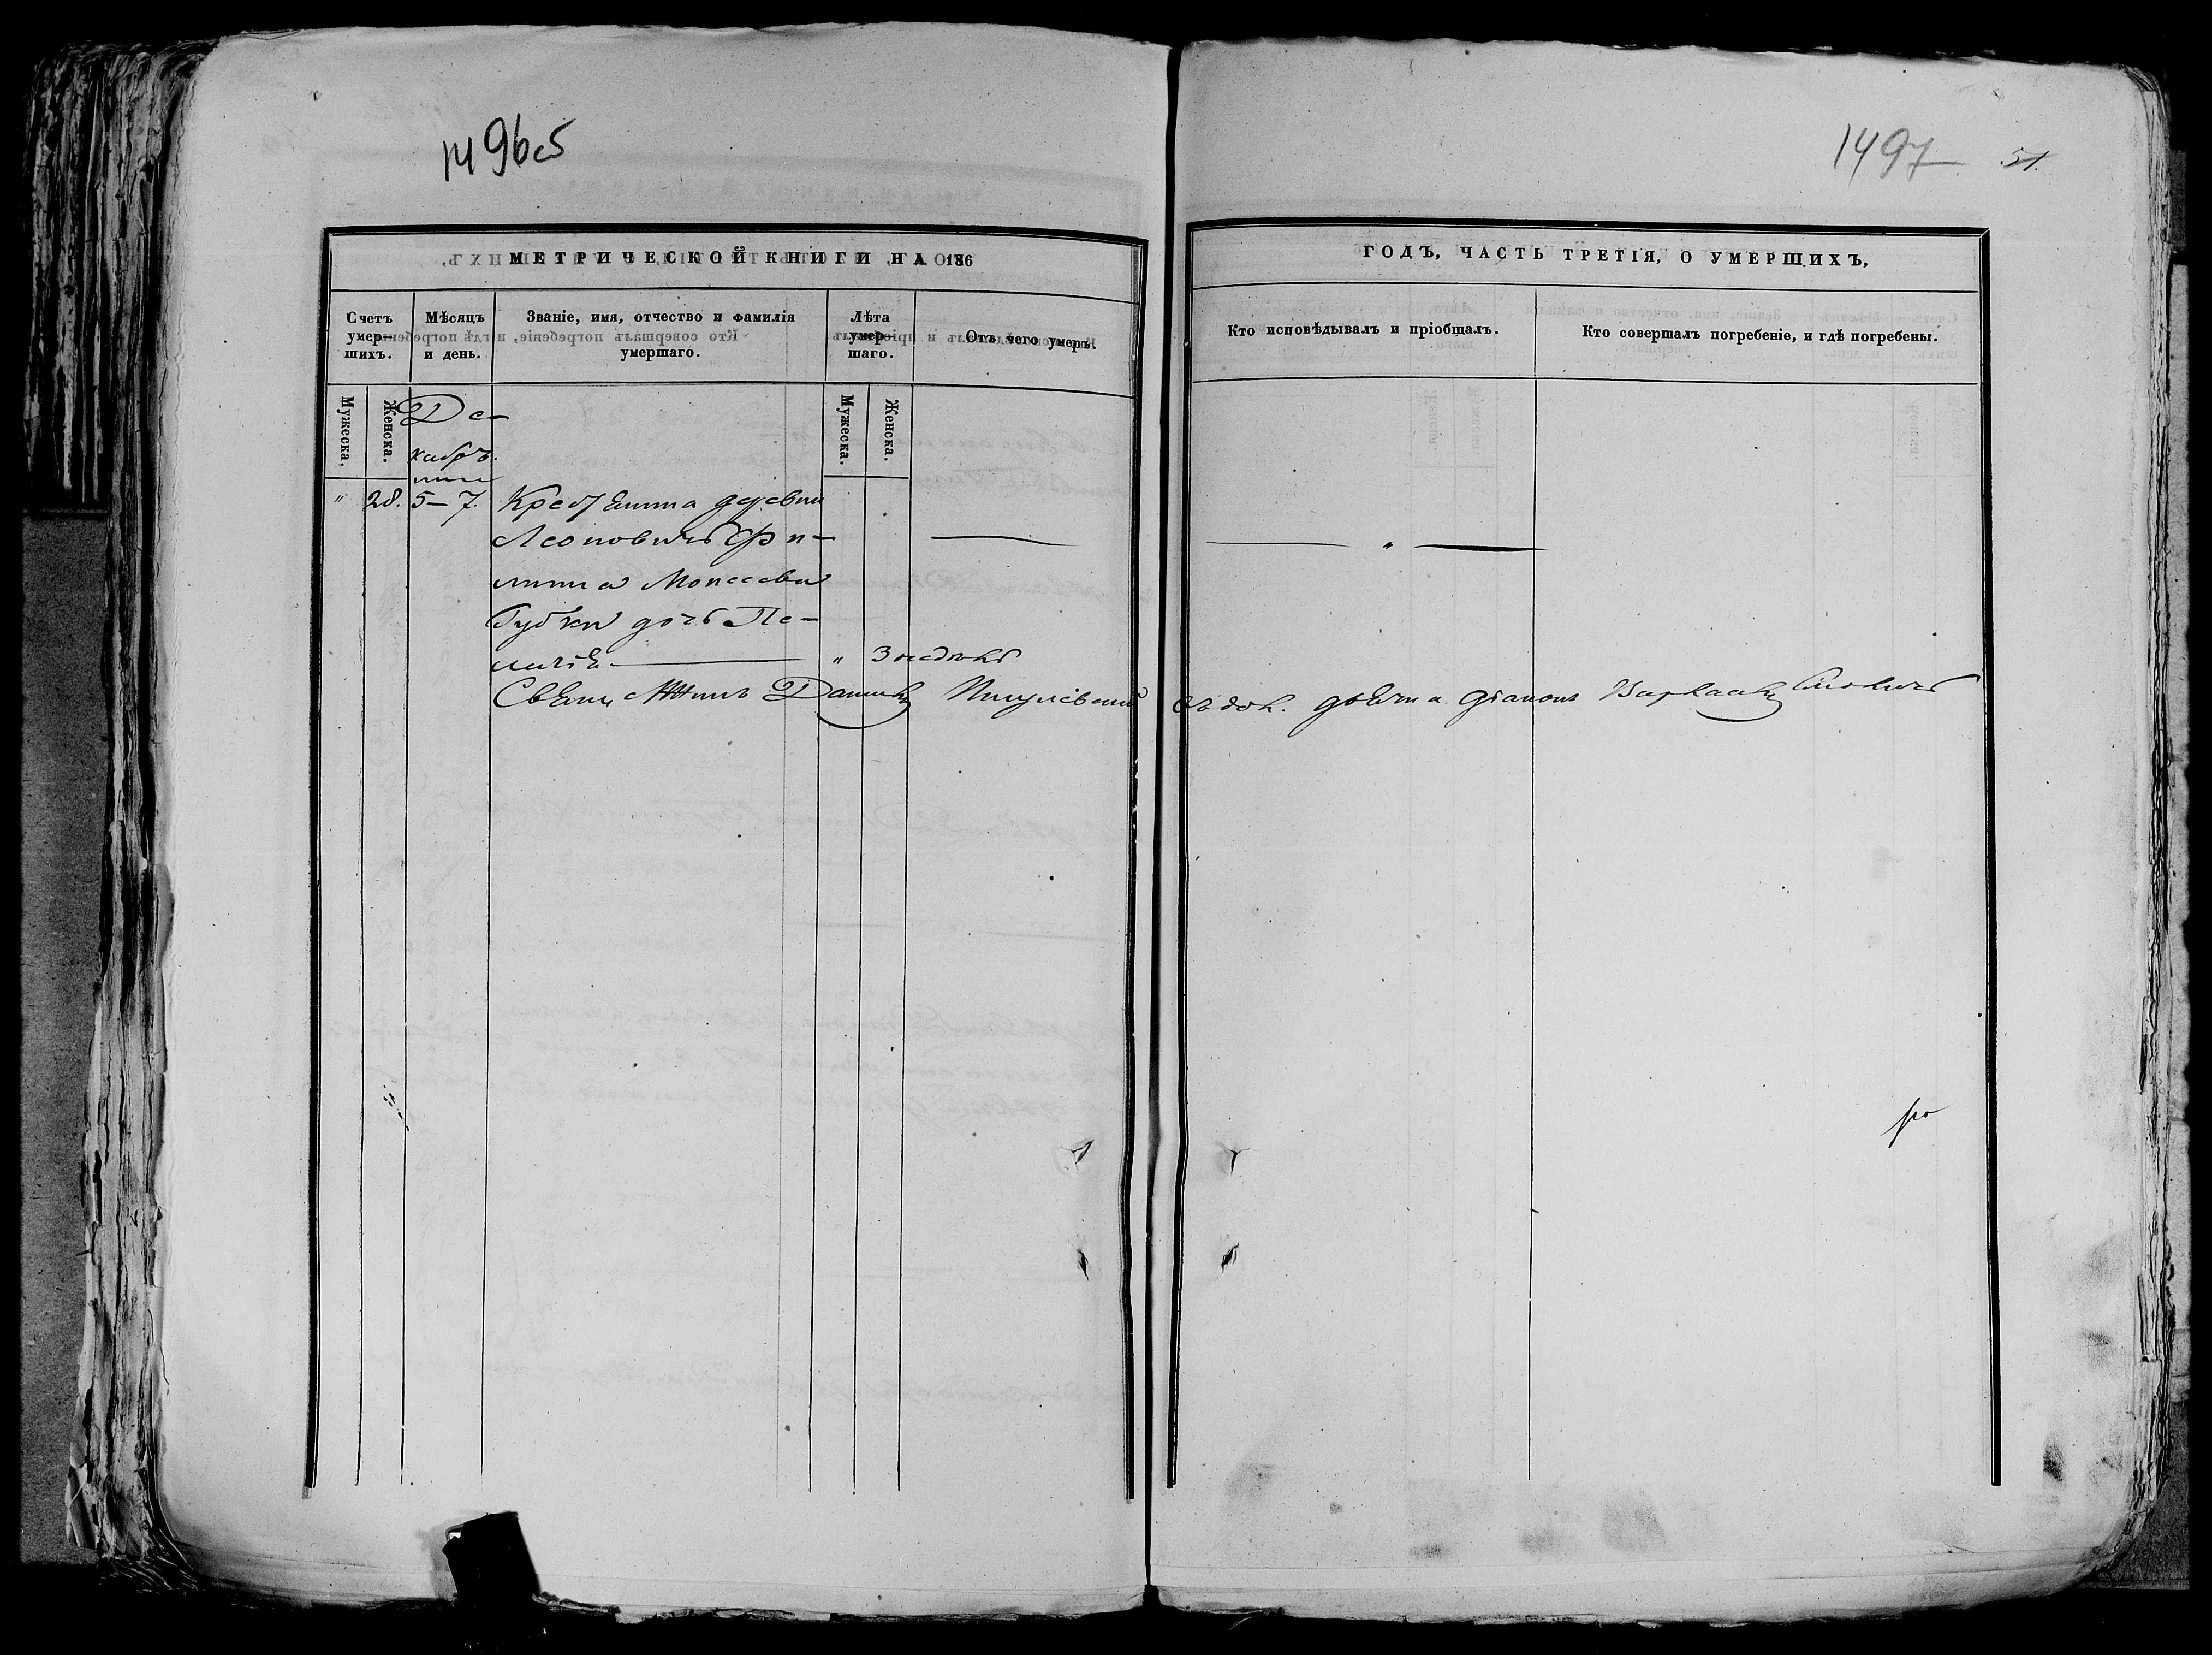 1496об
1497 51.
МЕТРИЧЕСКОЙ КНИГИ НА 186
ГОДЪ, ЧАСТЬ ТРЕТІЯ, О УМЕРШИХЪ,
Счетъ умер-шихъ.
Мѣсяцъ и день.
Званіе, имя, отчество и фамилія умершаго.
Лѣта умер-шаго.
Отъ чего умеръ.
Кто исповѣдывалъ и пріобщалъ.
Кто совершалъ погребеніе, и гдѣ погребены.
Мужеска.
Женска.
Мужеска.
Женска.
Де-
кабрь.
" 28. 5–7. Крестьянина деревни
Леоновичъ Фи-
липпа Моисеева
Губки дочь Пе-
лагія " 3 недѣль
Священникъ Даніилъ